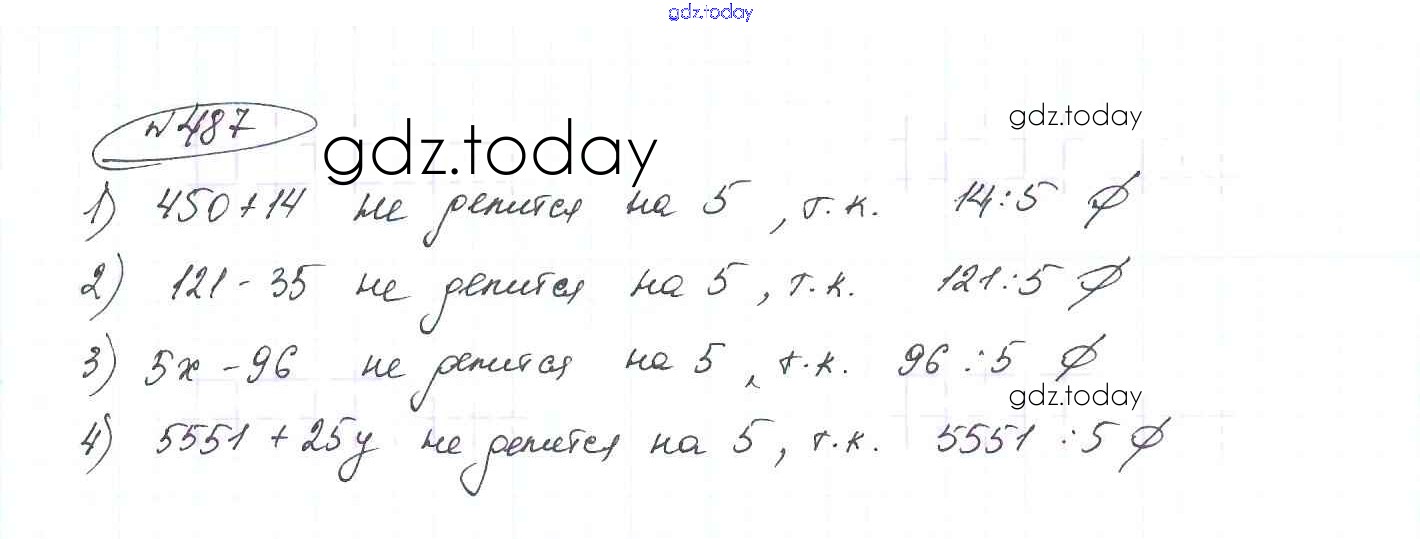 gdz.today
№ 487
gdz.today
gdz.today
1) 450+14 не делится на 5, т.к. 14:5 ∅
2) 121-35 не делится на 5, т.к. 121:5 ∅
3) 5x-96 не делится на 5, т.к. 96:5 ∅
gdz.today
4) 5551+25y не делится на 5, т.к. 5551:5 ∅